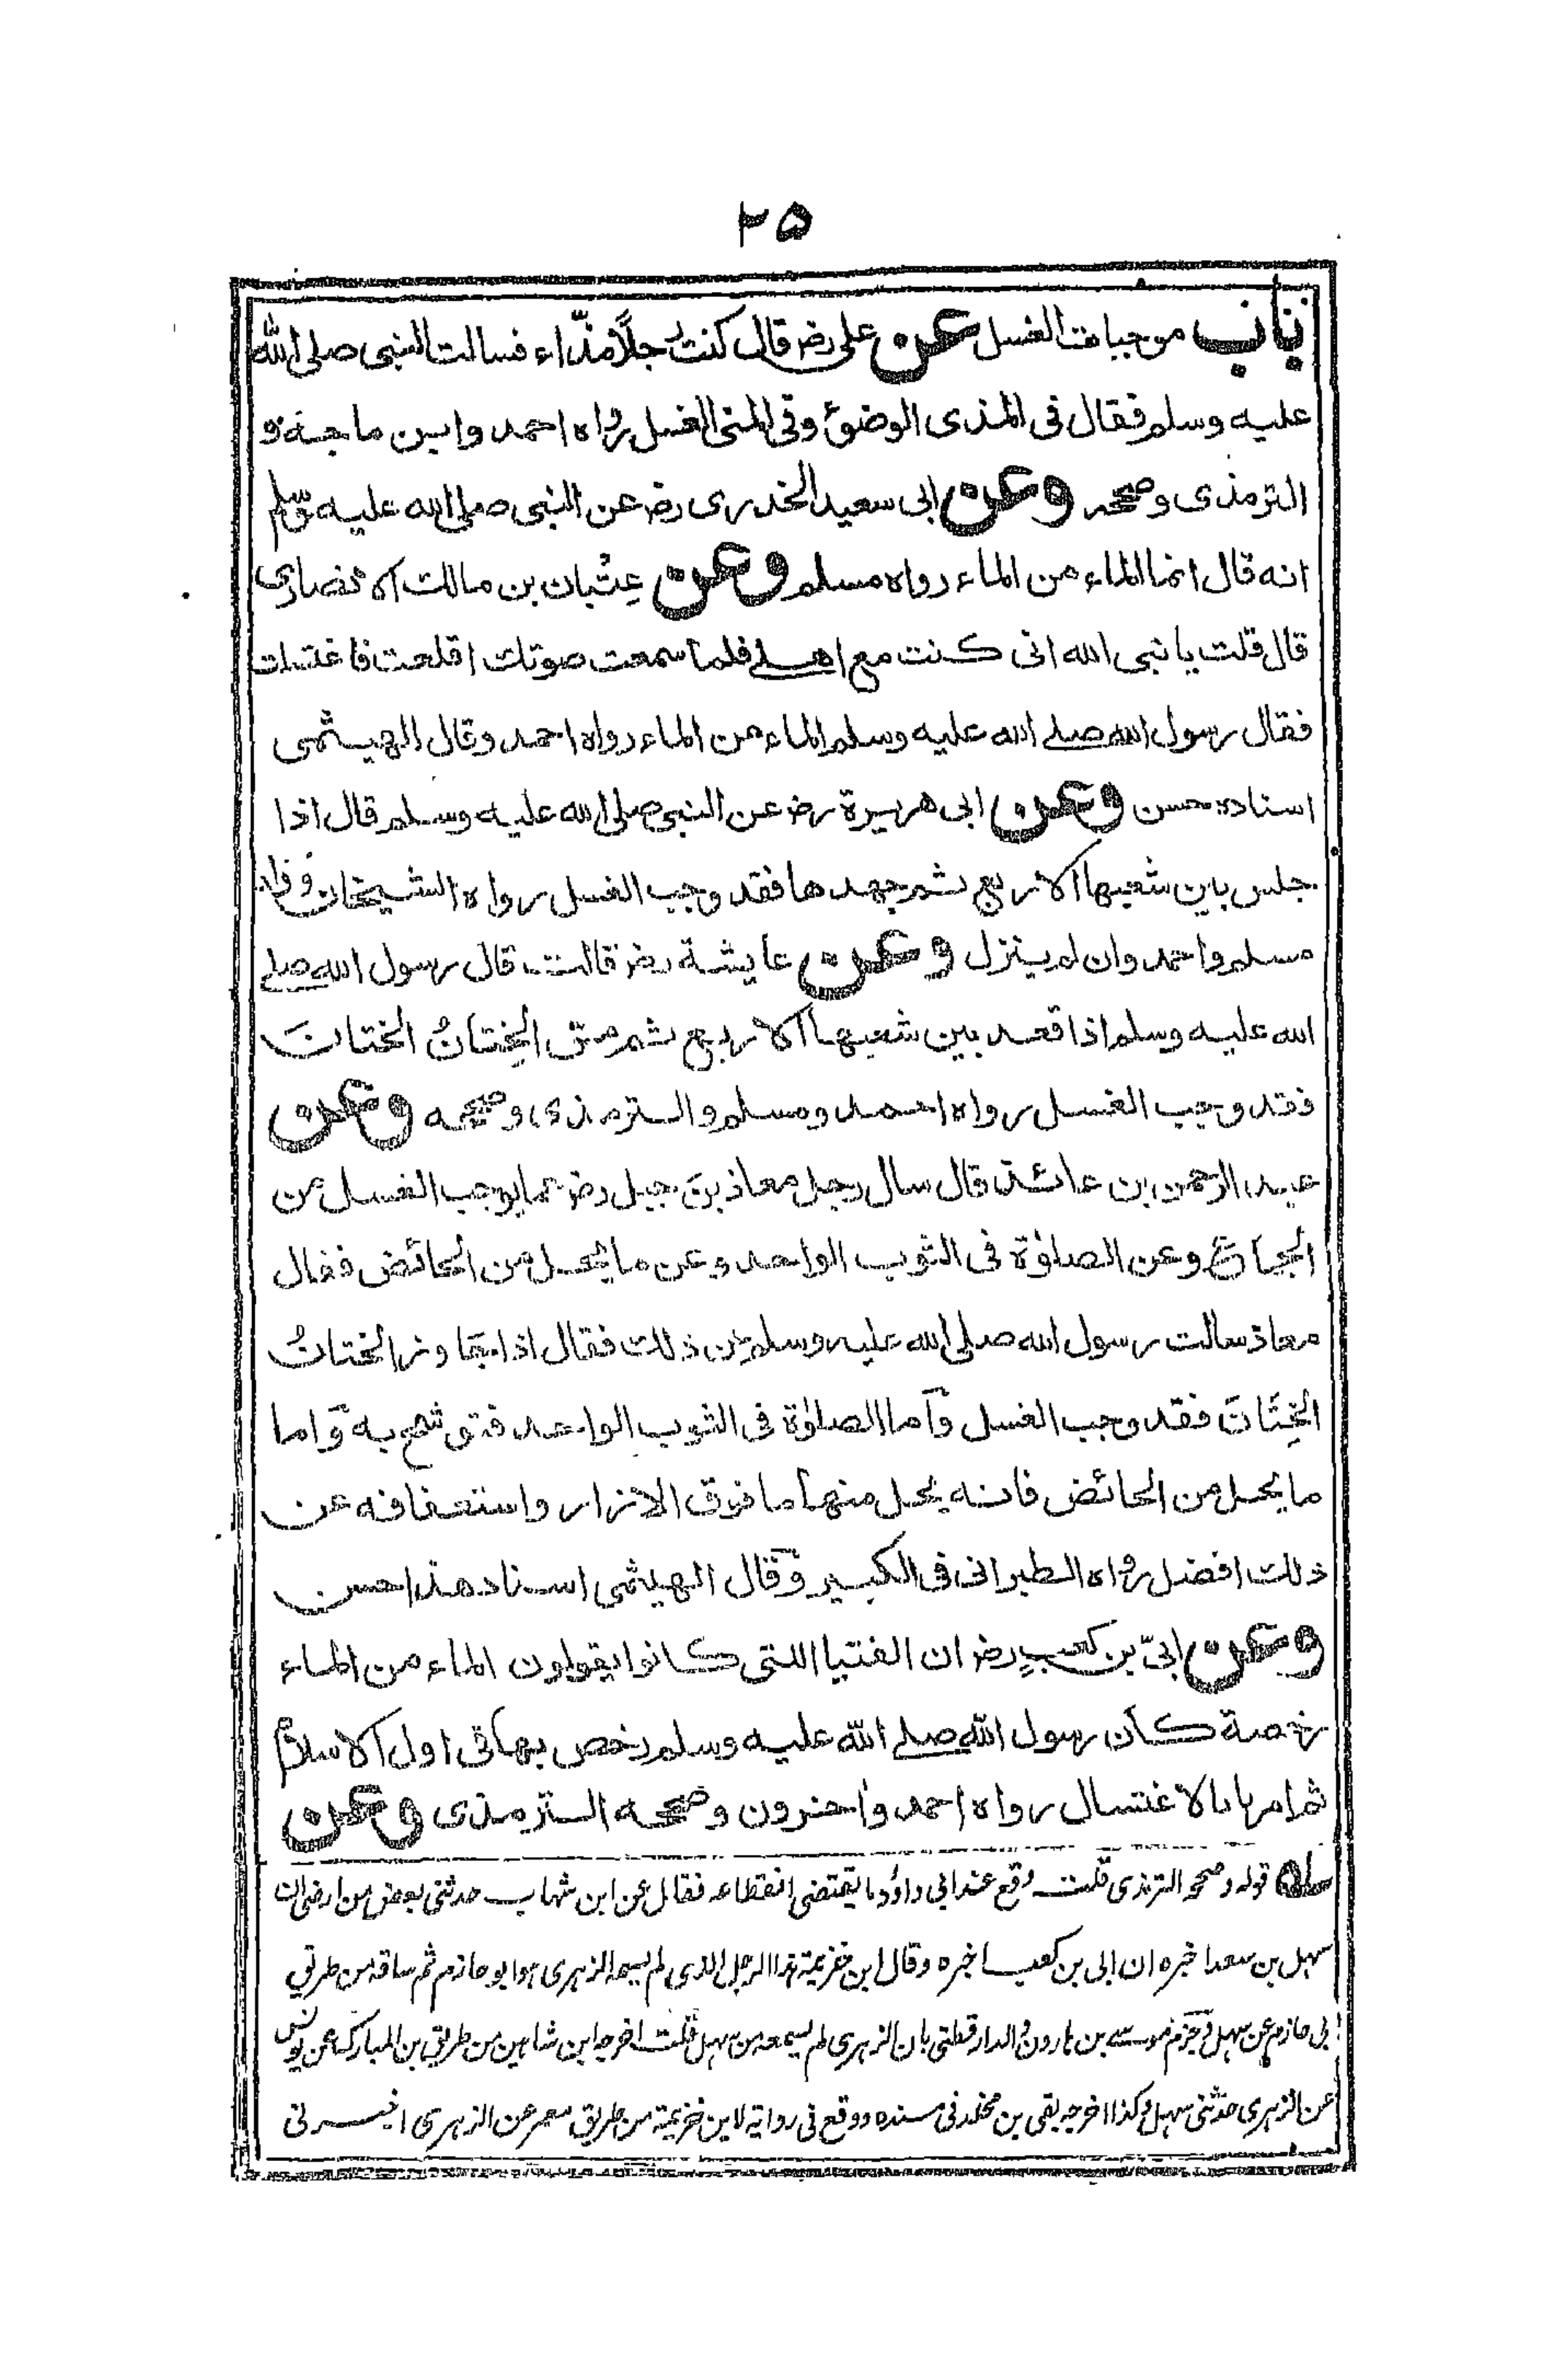 ٢٥
باب موجبات الغسل عن على رض قال كنت رجلًا مذّاء فسالت النبى صلى الله
عليه وسلم فقال فى المذى الوضوء وفى المنى الغسل رواه احمد وابن ماجة و
الترمذى وصححه وعن ابى سعيد الخدرى رض عن النبى صلى الله عليه وسلم
انه قال انما الماء من الماء رواه مسلم وعن عِتْبان بن مالك الانصارى
قال قلت يا نبى الله انى كنت مع اهلى فلما سمعت صوتك اقلعت فاغتسلت
فقال رسول الله صلى الله عليه وسلم الماء من الماء رواه احمد وقال الهيثمى
اسناده حسن وعن ابى هريرة رض عن النبى صلى الله عليه وسلم قال اذا
جلس بين شعبها الاربع ثم جهدها فقد وجب الغسل رواه الشيخان وزاد
مسلم واحمد وان لم ينزل وعن عايشة رض قالت قال رسول الله صلى
الله عليه وسلم اذا قعد بين شعبها الاربع ثم مسّ الخِتانُ الختانَ
فقد وجب الغسل رواه احمد ومسلم والترمذى وصححه وعن
عبد الرحمن بن عائذ قال سال رجل معاذ بن جبل رض عما يوجب الغسل من
الجماع وعن الصلوٰة فى الثوب الواحد وعن ما يحل من الحائض فقال
معاذ سالت رسول الله صلى الله عليه وسلم عن ذلك فقال اذا جاوز الختانُ
الخِتَانَ فقد وجب الغسل وآما الصلوٰة فى الثوب الواحد فتوشح به وآما
ما يحل من الحائض فانه يحل منها ما فوق الازار واستعفافه عن
ذلك افضل رواه الطبرانى فى الكبير وقال الهيثمى اسناد هذا حسن
وعن ابىّ بن كعبٍ رض ان الفتيا اللتى كانوا يقولون الماء من الماء
رخصة كان رسول الله صلى الله عليه وسلم رخص بها فى اول الاسلام
ثم امرنا بالاغتسال رواه احمد واٰخرون وصححه الترمذى وعن
له قوله وصححه الترمذى قلت وقع عند ابى داؤد ما يقتضى انقطاعه فقال عن ابن شهاب حدثنى بعض من ارضى ان
سهل بن سعد اخبره ان ابى بن كعب اخبره وقال ابن خزيمة هذا الرجل الذى لم يسمه الزهرى هو ابو حازم ثم ساقه من طريق
ابى حازم عن سهل وجزم موسى بن هارون والدارقطنى بان الزهرى لم يسمعه من سهل قلت اخرجه ابن شاهين من طريق بن المبارك عن يونس
عن الزهرى حدثنى سهل وكذا اخرجه بقى بن مخلد فى مسنده ووقع فى رواية لابن خزيمة من طريق معمر عن الزهرى اخبرنى